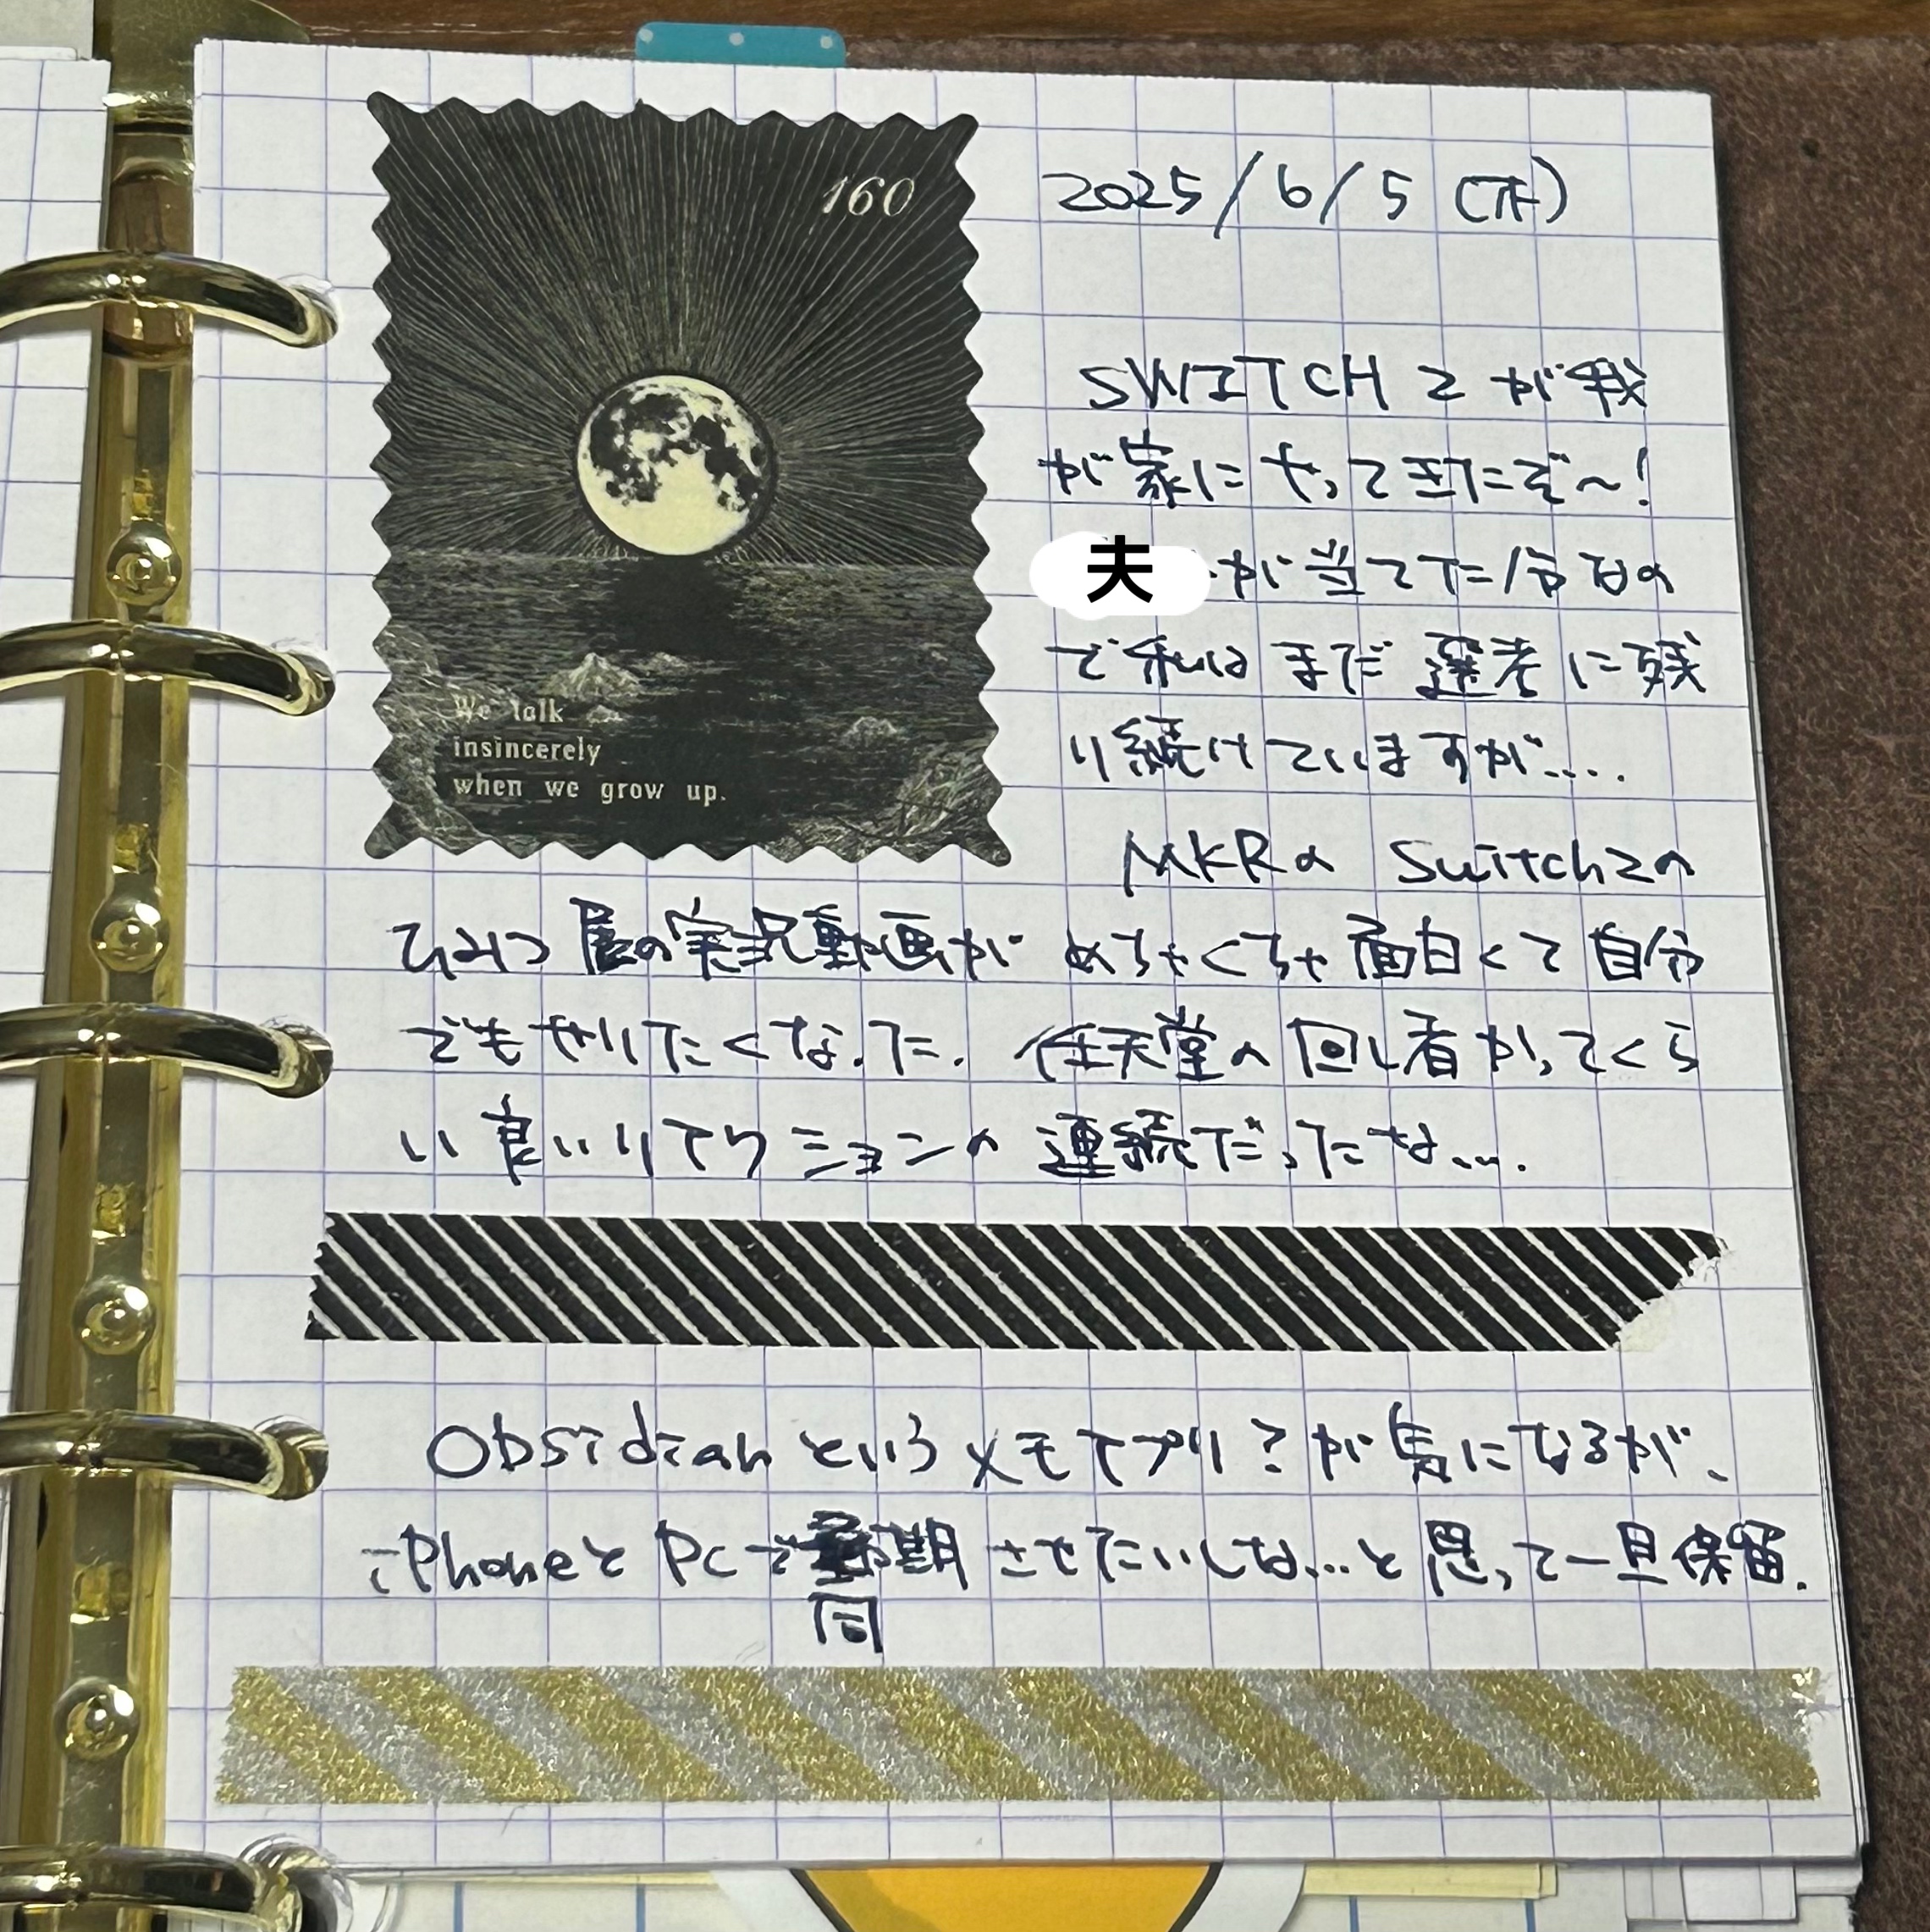 160
We talk
insincerely
when we grow up.
2025/6/5 (木)
SWITCH2が我
が家にやってきたぞ〜!
夫が当てた分なの
で私はまだ選考に残
り続けていますが....
MKRの Switch2の
ひみつ展の実況動画がめちゃくちゃ面白くて自分
でもやりたくなった. 任天堂の回し者かってくら
い良いリアクションの連続だったな....
Obsidianというメモアプリ?が気になるが、
iPhoneとPCで期させたいしな...と思って一旦保留.
同